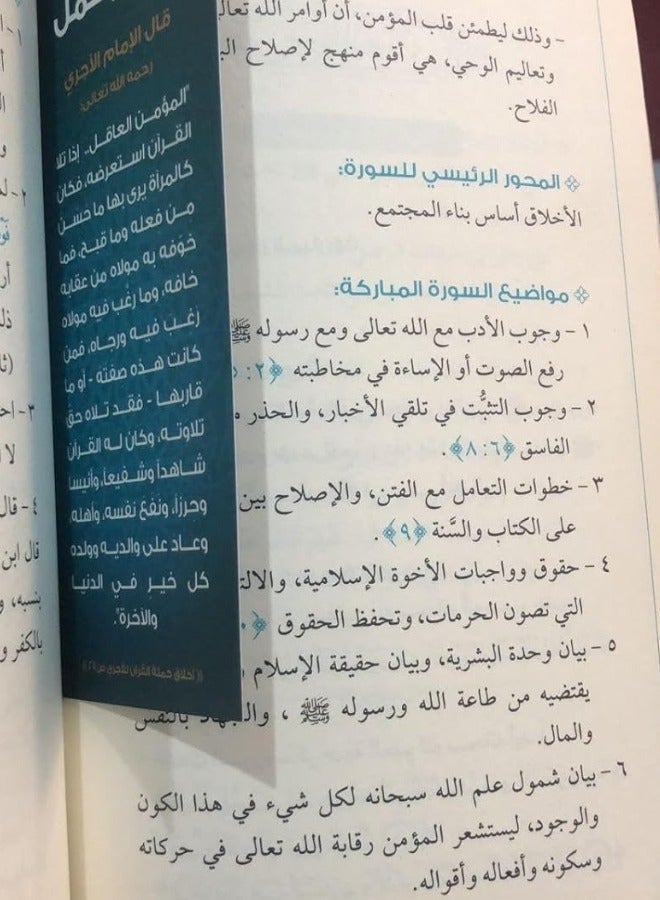 - وذلك ليطمئن قلب المؤمن، أن أوامر الله تعالى
وتعاليم الوحي، هي أقوم منهج لإصلاح
الفلاح.
المحور الرئيسي للسورة:
الأخلاق أساس بناء المجتمع.
مواضيع السورة المباركة:
١ - وجوب الأدب مع الله تعالى ومع رسوله ﷺ
رفع الصوت أو الإساءة في مخاطبته ﴿٢:
٢ - وجوب التثبُّت في تلقي الأخبار، والحذر
الفاسق ﴿٦: ٨﴾.
٣ - خطوات التعامل مع الفتن، والإصلاح بين
على الكتاب والسَّنة ﴿٩﴾.
٤ - حقوق وواجبات الأخوة الإسلامية،
التي تصون الحرمات، وتحفظ الحقوق
٥ - بيان وحدة البشرية، وبيان حقيقة الإسلام
يقتضيه من طاعة الله ورسوله ﷺ، والجهاد بالنفس
والمال.
٦ - بيان شمول علم الله سبحانه لكل شيء في هذا الكون
والوجود، ليستشعر المؤمن رقابة الله تعالى في حركاته
وسكونه وأفعاله وأقواله.
قال الإمام الآجري
رحمه الله تعالى:
"المؤمن العاقل.. إذا تلا
القرآن استعرضه، فكان
كالمرآة يرى بها ما حسن
من فعله وما قبح، فما
خوّفه به مولاه من عقابه
خافه، وما رغّب فيه مولاه
رغب فيه ورجاه، فمن
كانت هذه صفته - أو ما
قاربها - فقد تلاه حق
تلاوته، وكان له القرآن
شاهداً وشفيعاً، وأنيساً
وحرزاً، ونَفَعَ نفسه، وأهله،
وعاد على والديه وولده
كل خير في الدنيا
والآخرة".
(( أخلاق حملة القرآن للآجري ص
٢ -
٣ -
٤ - قال
قال ابن
بنسبه، و
بالكفر و